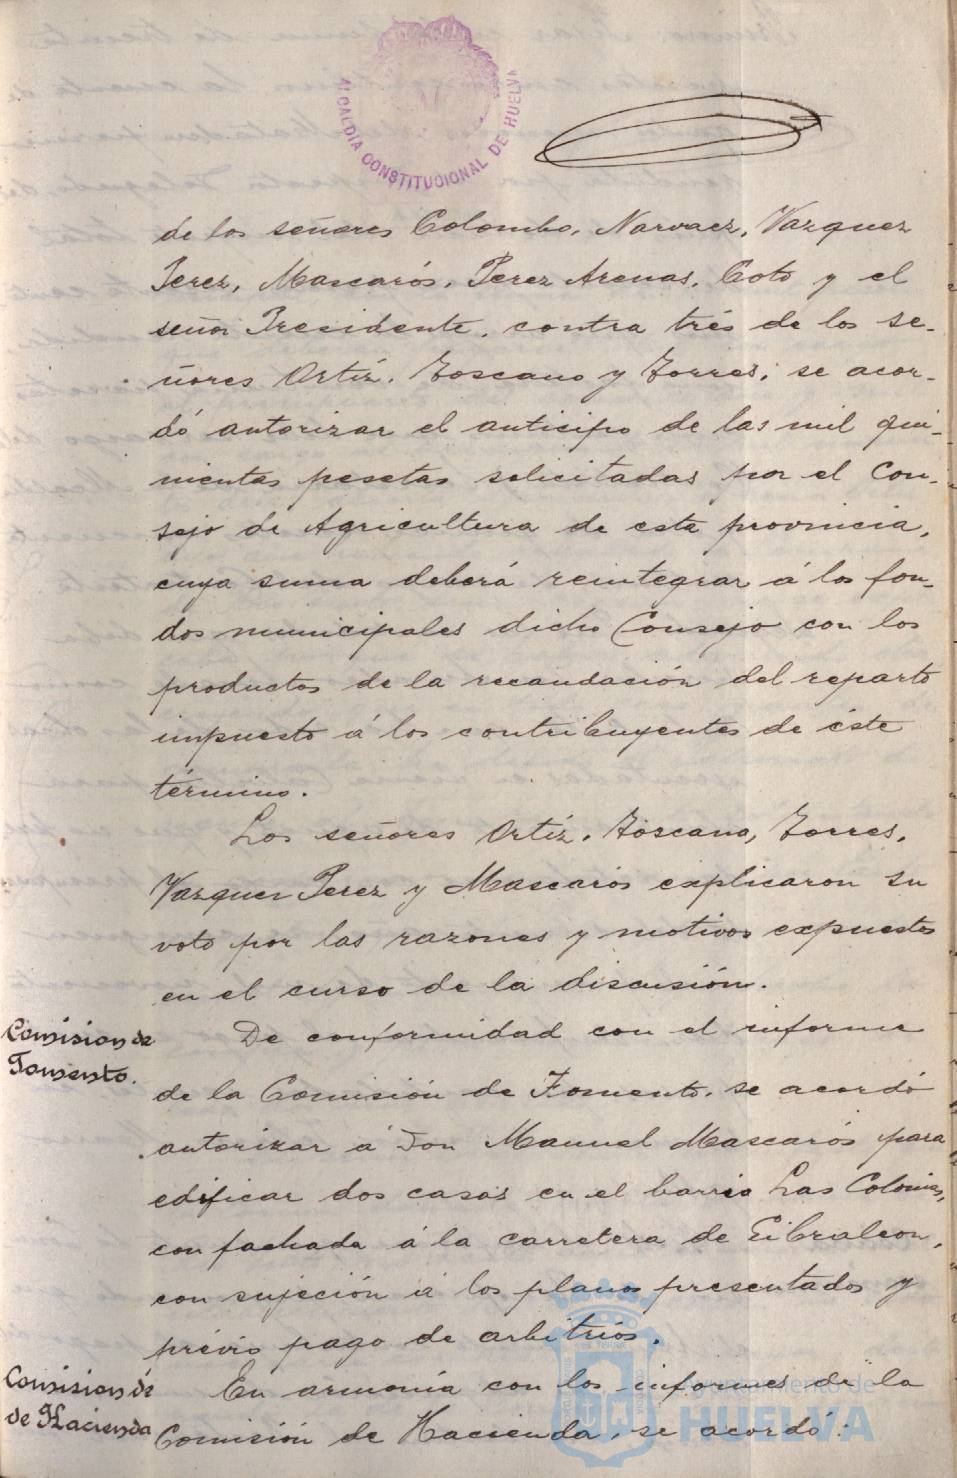 ALCALDIA CONSTITUCIONAL DE HUELVA
de los señores Colombo, Narvaez, Vazquez
Perez, Mascarós, Perez Arenas, Coto y el
señor Presidente, contra trés de los se-
ñores Ortíz, Toscano y Torres; se acor-
dó autorizar el anticipo de las mil qui-
nientas pesetas solicitadas por el Con-
sejo de Agricultura de esta provincia,
cuya suma deberá reintegrar á los fon-
dos municipales dicho Consejo con los
productos de la recaudación del reparto
impuesto á los contribuyentes de éste
término.
Los señores Ortíz, Toscano, Torres,
Vazquez Perez y Mascarós explicaron su
voto por las razones y motivos expuestos
en el curso de la discusión.
Comision de
Fomento.
De conformidad con el informe
de la Comisión de Fomento, se acordó
autorizar á Don Manuel Mascarós para
edificar dos casas en el barrio Las Colonias,
con fachada á la carretera de Gibraleon,
con sujeción á los planos presentados y
prévio pago de arbitrios.
Comision de
de Hacienda
En armonía con los informes de la
Comisión de Hacienda, se acordó:
Ayuntamiento de
HUELVA